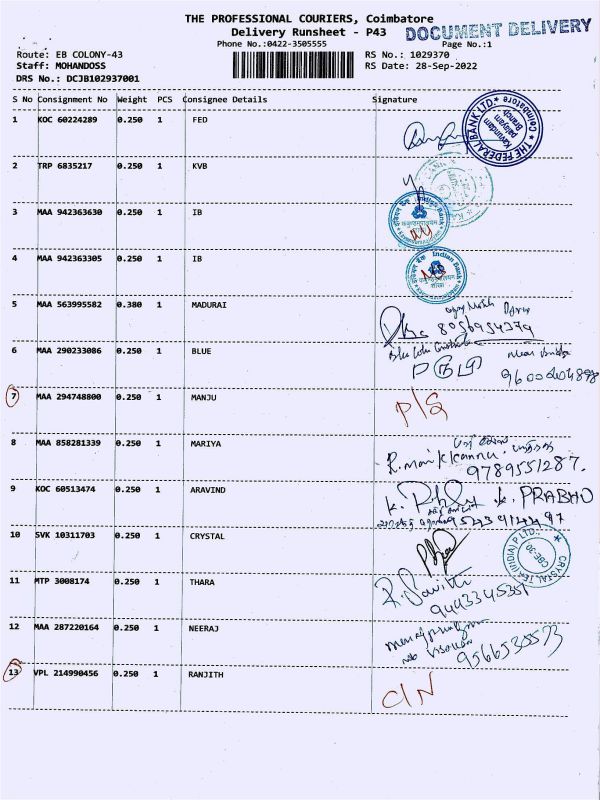 THE PROFESSIONAL COURIERS, Coimbatore
DOCUMENT DELIVERY
Delivery Runsheet - P43
Phone No.:0422-3505555
Page No.:1
Route: EB COLONY-43
RS No.: 1029370
Staff: MOHANDOSS
RS Date: 28-Sep-2022
DRS No.: DCJB102937001
S No Consignment No Weight PCS Consignee Details Signature
1 KOC 60224289 0.250 1 FED
THE FEDERAL BANK LTD. Coimbatore
Kavundam
palayam
Branch
2 TRP 6835217 0.250 1 KVB
3 MAA 942363630 0.250 1 IB
Indian Bank
4 MAA 942363305 0.250 1 IB
Indian Bank
5 MAA 563995582 0.380 1 MADURAI
8056954379
6 MAA 290233086 0.250 1 BLUE
9600404898
7 MAA 294748800 0.250 1 MANJU
P/S
8 MAA 858281339 0.250 1 MARIYA
9789551287.
9 KOC 60513474 0.250 1 ARAVIND
K. PRABHU
10 SVK 10311703 0.250 1 CRYSTAL
CRYSTAL TEK (INDIA) P LTD.,
CBE-30
11 MTP 3008174 0.250 1 THARA
R. Savithi
12 MAA 287220164 0.250 1 NEERAJ
9566535573
13 VPL 214990456 0.250 1 RANJITH
C/N